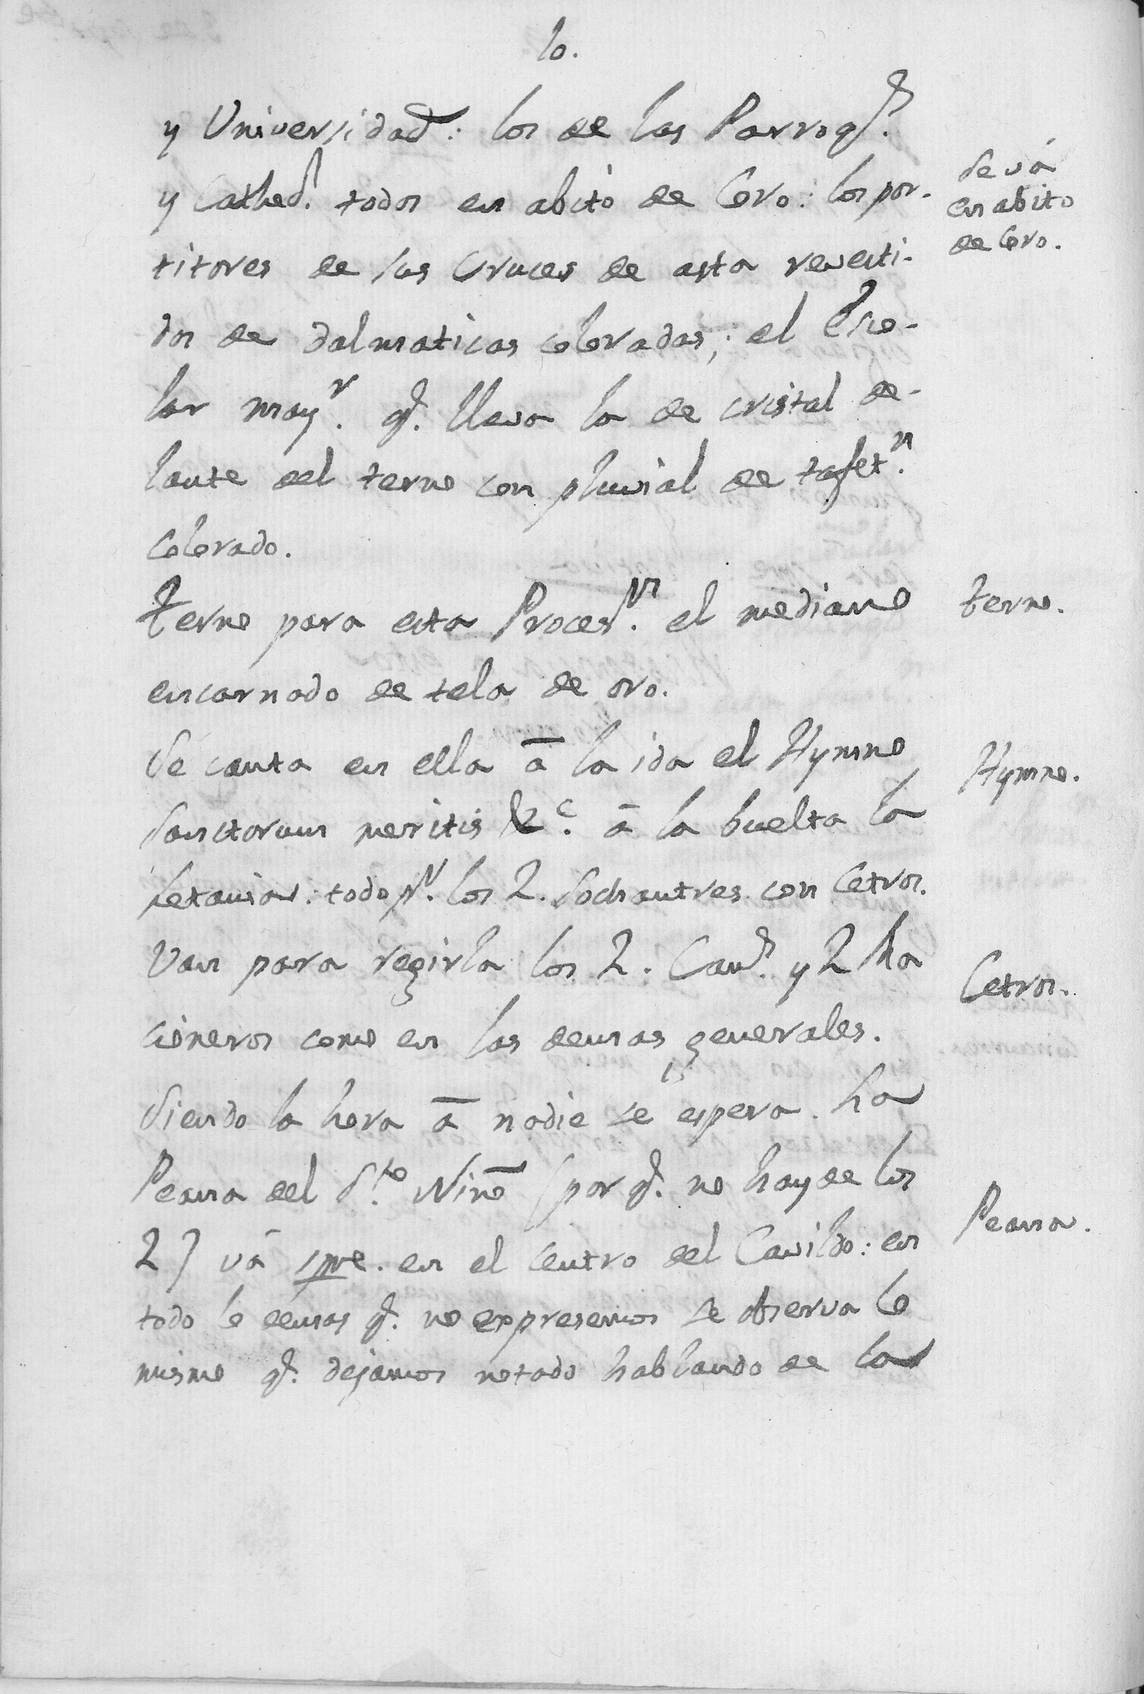 10.
y Universidad: los de las Parroq.s
y Cathed.l todos en abito de Coro: los por-
titores de las Cruces de asta revesti-
dos de dalmaticas coloradas; el Esco-
lar may.r q.e lleva la de cristal de-
lante del terno con pluvial de tafet.n
colorado.
Terno para esta Proces.n el mediano
encarnado de tela de oro.
Se canta en ella â la ida el Hymno
Sanctorum meritis &c. â la buelta la
Letania: todo p.r los 2. Sochantres con Cetros.
Van para regirla los 2. Can.s y 2 Ra
cioneros como en las demas generales.
Siendo la hora â nadie se espera. La
Peana del S.to Niño (por q.e no hay de los
2) vá spre. en el centro del Cavildo: en
todo lo demas q.e no expresemos se observa lo
mismo q.e dejamos notado hablando de la
Se vá
en abito
de Coro.
Terno.
Hymno.
Cetros.
Peana.